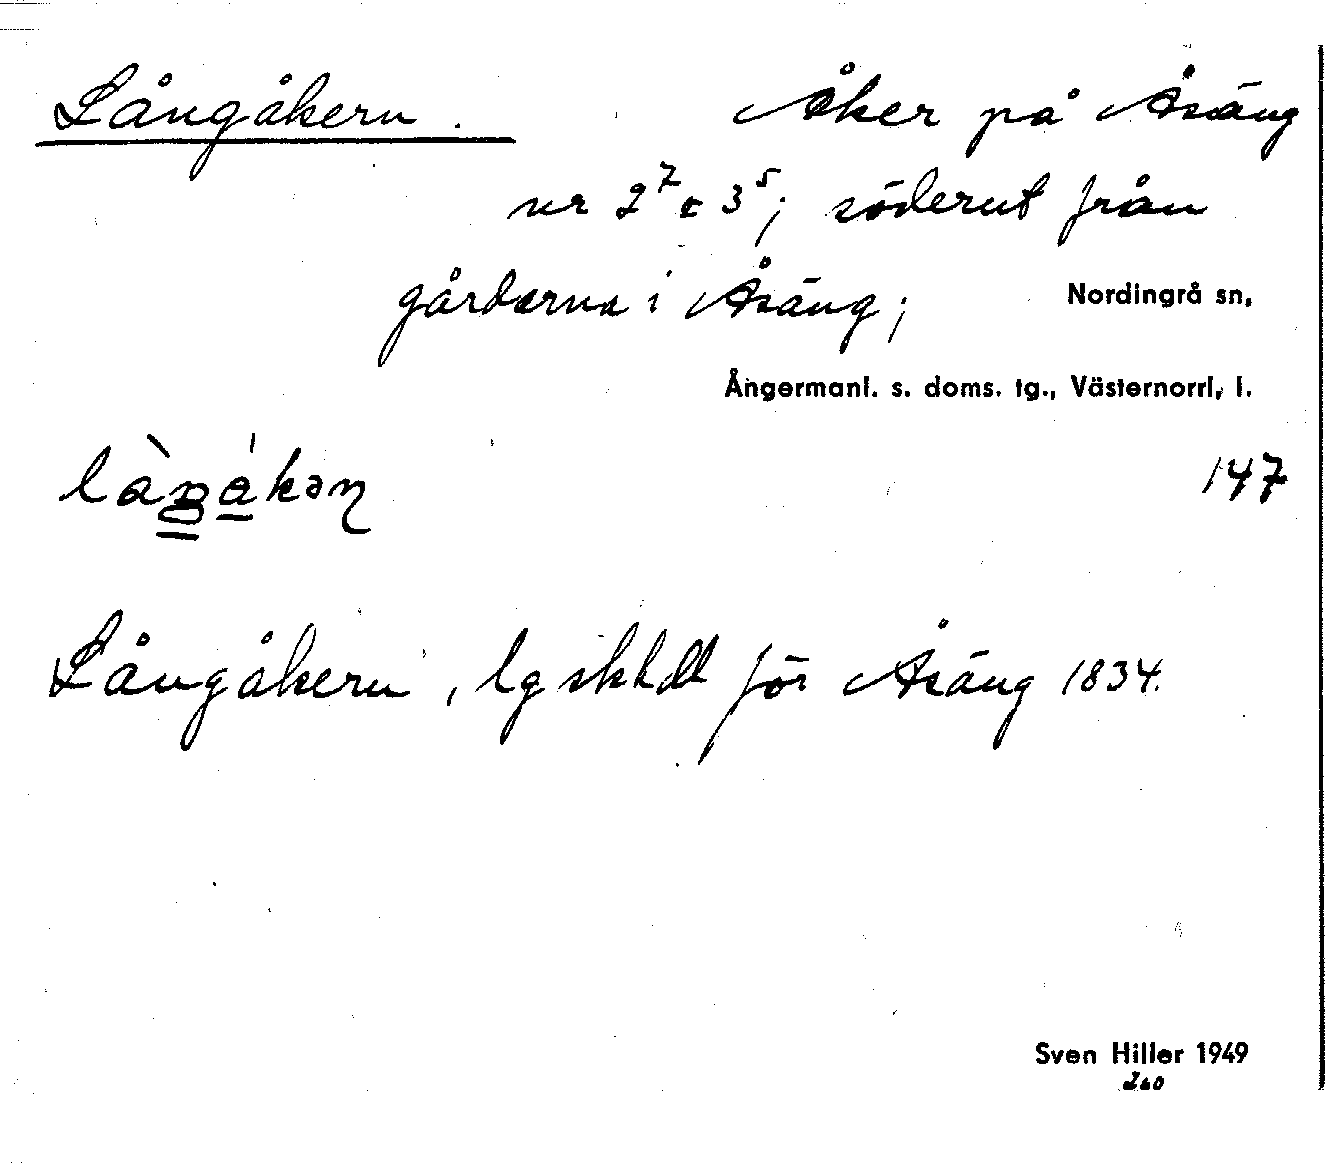 Långåkern. Åker på Åsäng
nr 2⁷ o 3⁵; söderut från
gårderna i Åsäng;
Nordingrå sn,
Ångermanl. s. doms. tg., Västernorrl, l.
147
Långåkern, lg skhdl för Åsäng 1834.
Sven Hiller 1949